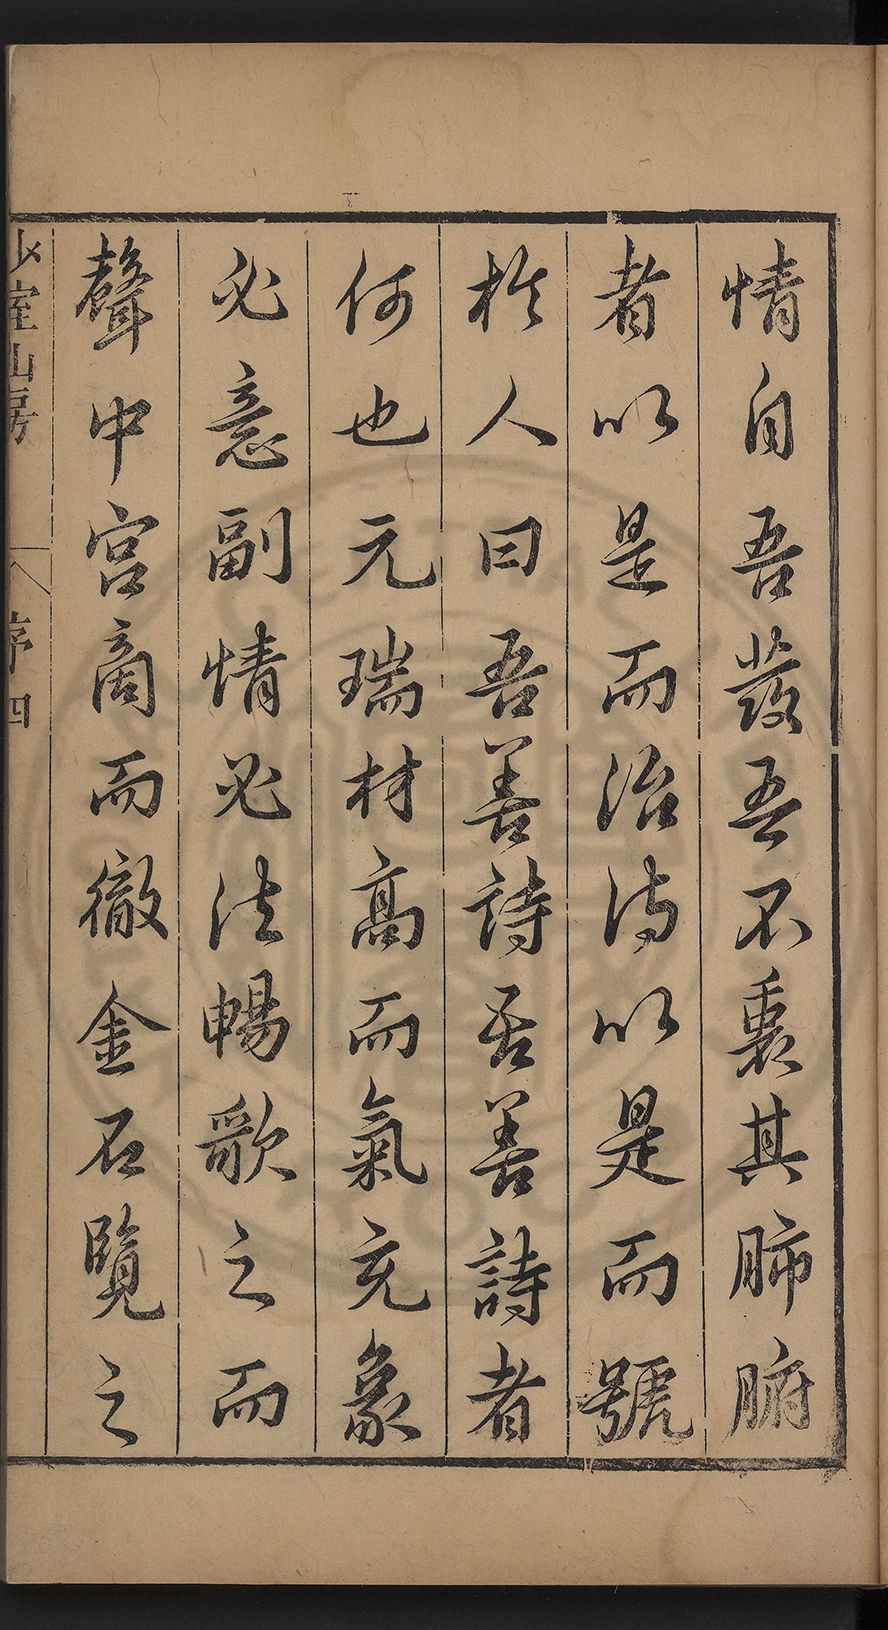 情自吾發吾不裏其肺腑
者以是而治詩以是而號
於人曰吾善詩吾善詩者
何也元瑞材高而氣充象
必意副情必法暢歌之而
聲中宮商而徹金石覽之
少室山房 序 四